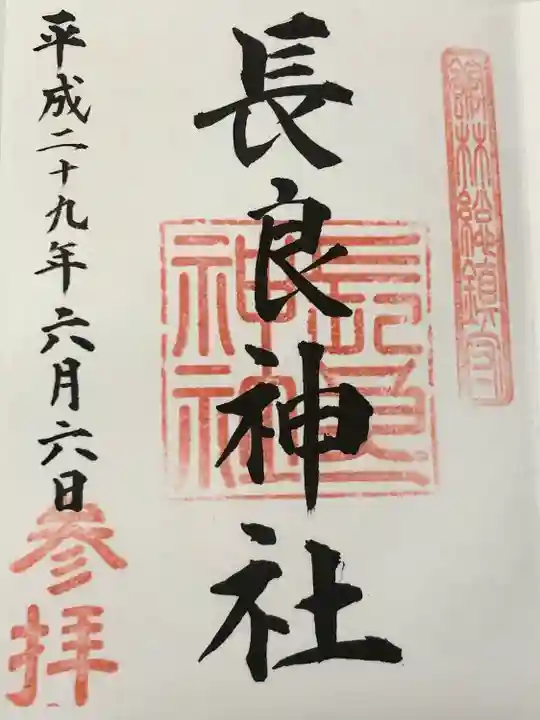 館林総鎮守
長良神社
長良神社
平成二十九年六月六日
参拝